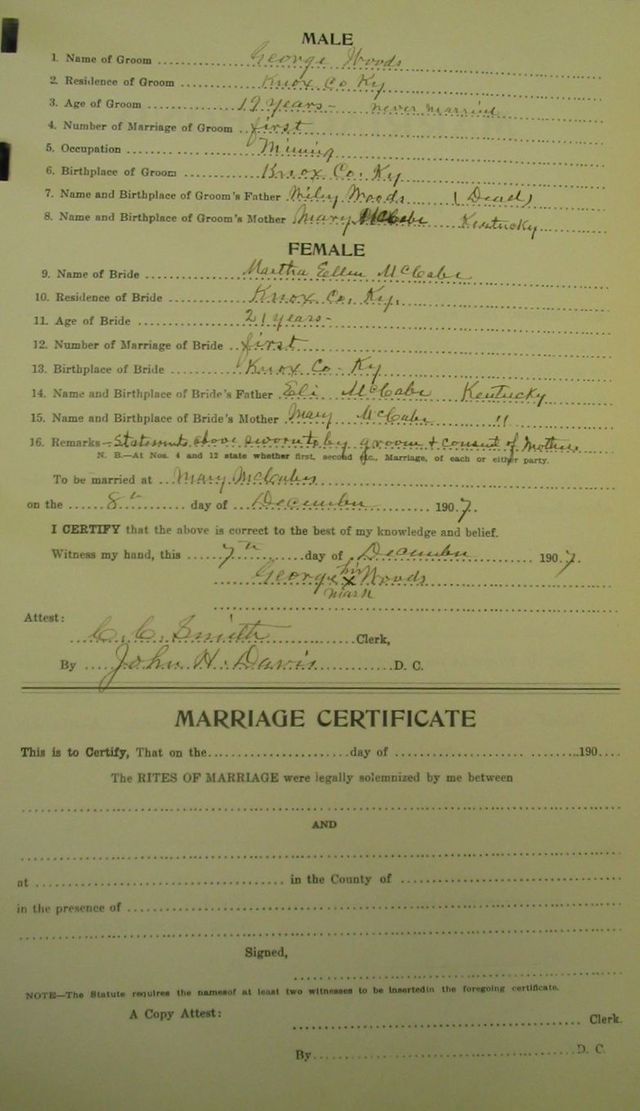 MALE
1. Name of Groom George Woods
2. Residence of Groom Knox Co Ky
3. Age of Groom 19 years - never married
4. Number of Marriage of Groom first
5. Occupation Mining
6. Birthplace of Groom Knox Co. Ky
7. Name and Birthplace of Groom's Father Wiley Woods (Dead)
8. Name and Birthplace of Groom's Mother Mary McCabe Kentucky
FEMALE
9. Name of Bride Martha Ellen McCabe
10. Residence of Bride Knox Co. Ky.
11. Age of Bride 21 years -
12. Number of Marriage of Bride first
13. Birthplace of Bride Knox Co. Ky
14. Name and Birthplace of Bride's Father Eli McCabe Kentucky
15. Name and Birthplace of Bride's Mother Mary McCabe "
16. Remarks - Statements above sworn to by groom & consent of Mother
N. B.—At Nos. 4 and 12 state whether first, second etc., Marriage, of each or either party.
To be married at Mary McCabes
on the 8th day of December 1907.
I CERTIFY that the above is correct to the best of my knowledge and belief.
Witness my hand, this 7th day of December 1907.
George his x mark Woods
Attest:
C. C. Smith Clerk,
By John H. Davis D. C.
MARRIAGE CERTIFICATE
This is to Certify, That on the day of 190
The RITES OF MARRIAGE were legally solemnized by me between
AND
at in the County of
in the presence of
Signed,
NOTE—The Statute requires the namesof at least two witnesses to be insertedin the foregoing certificate.
A Copy Attest:
Clerk.
By D. C.